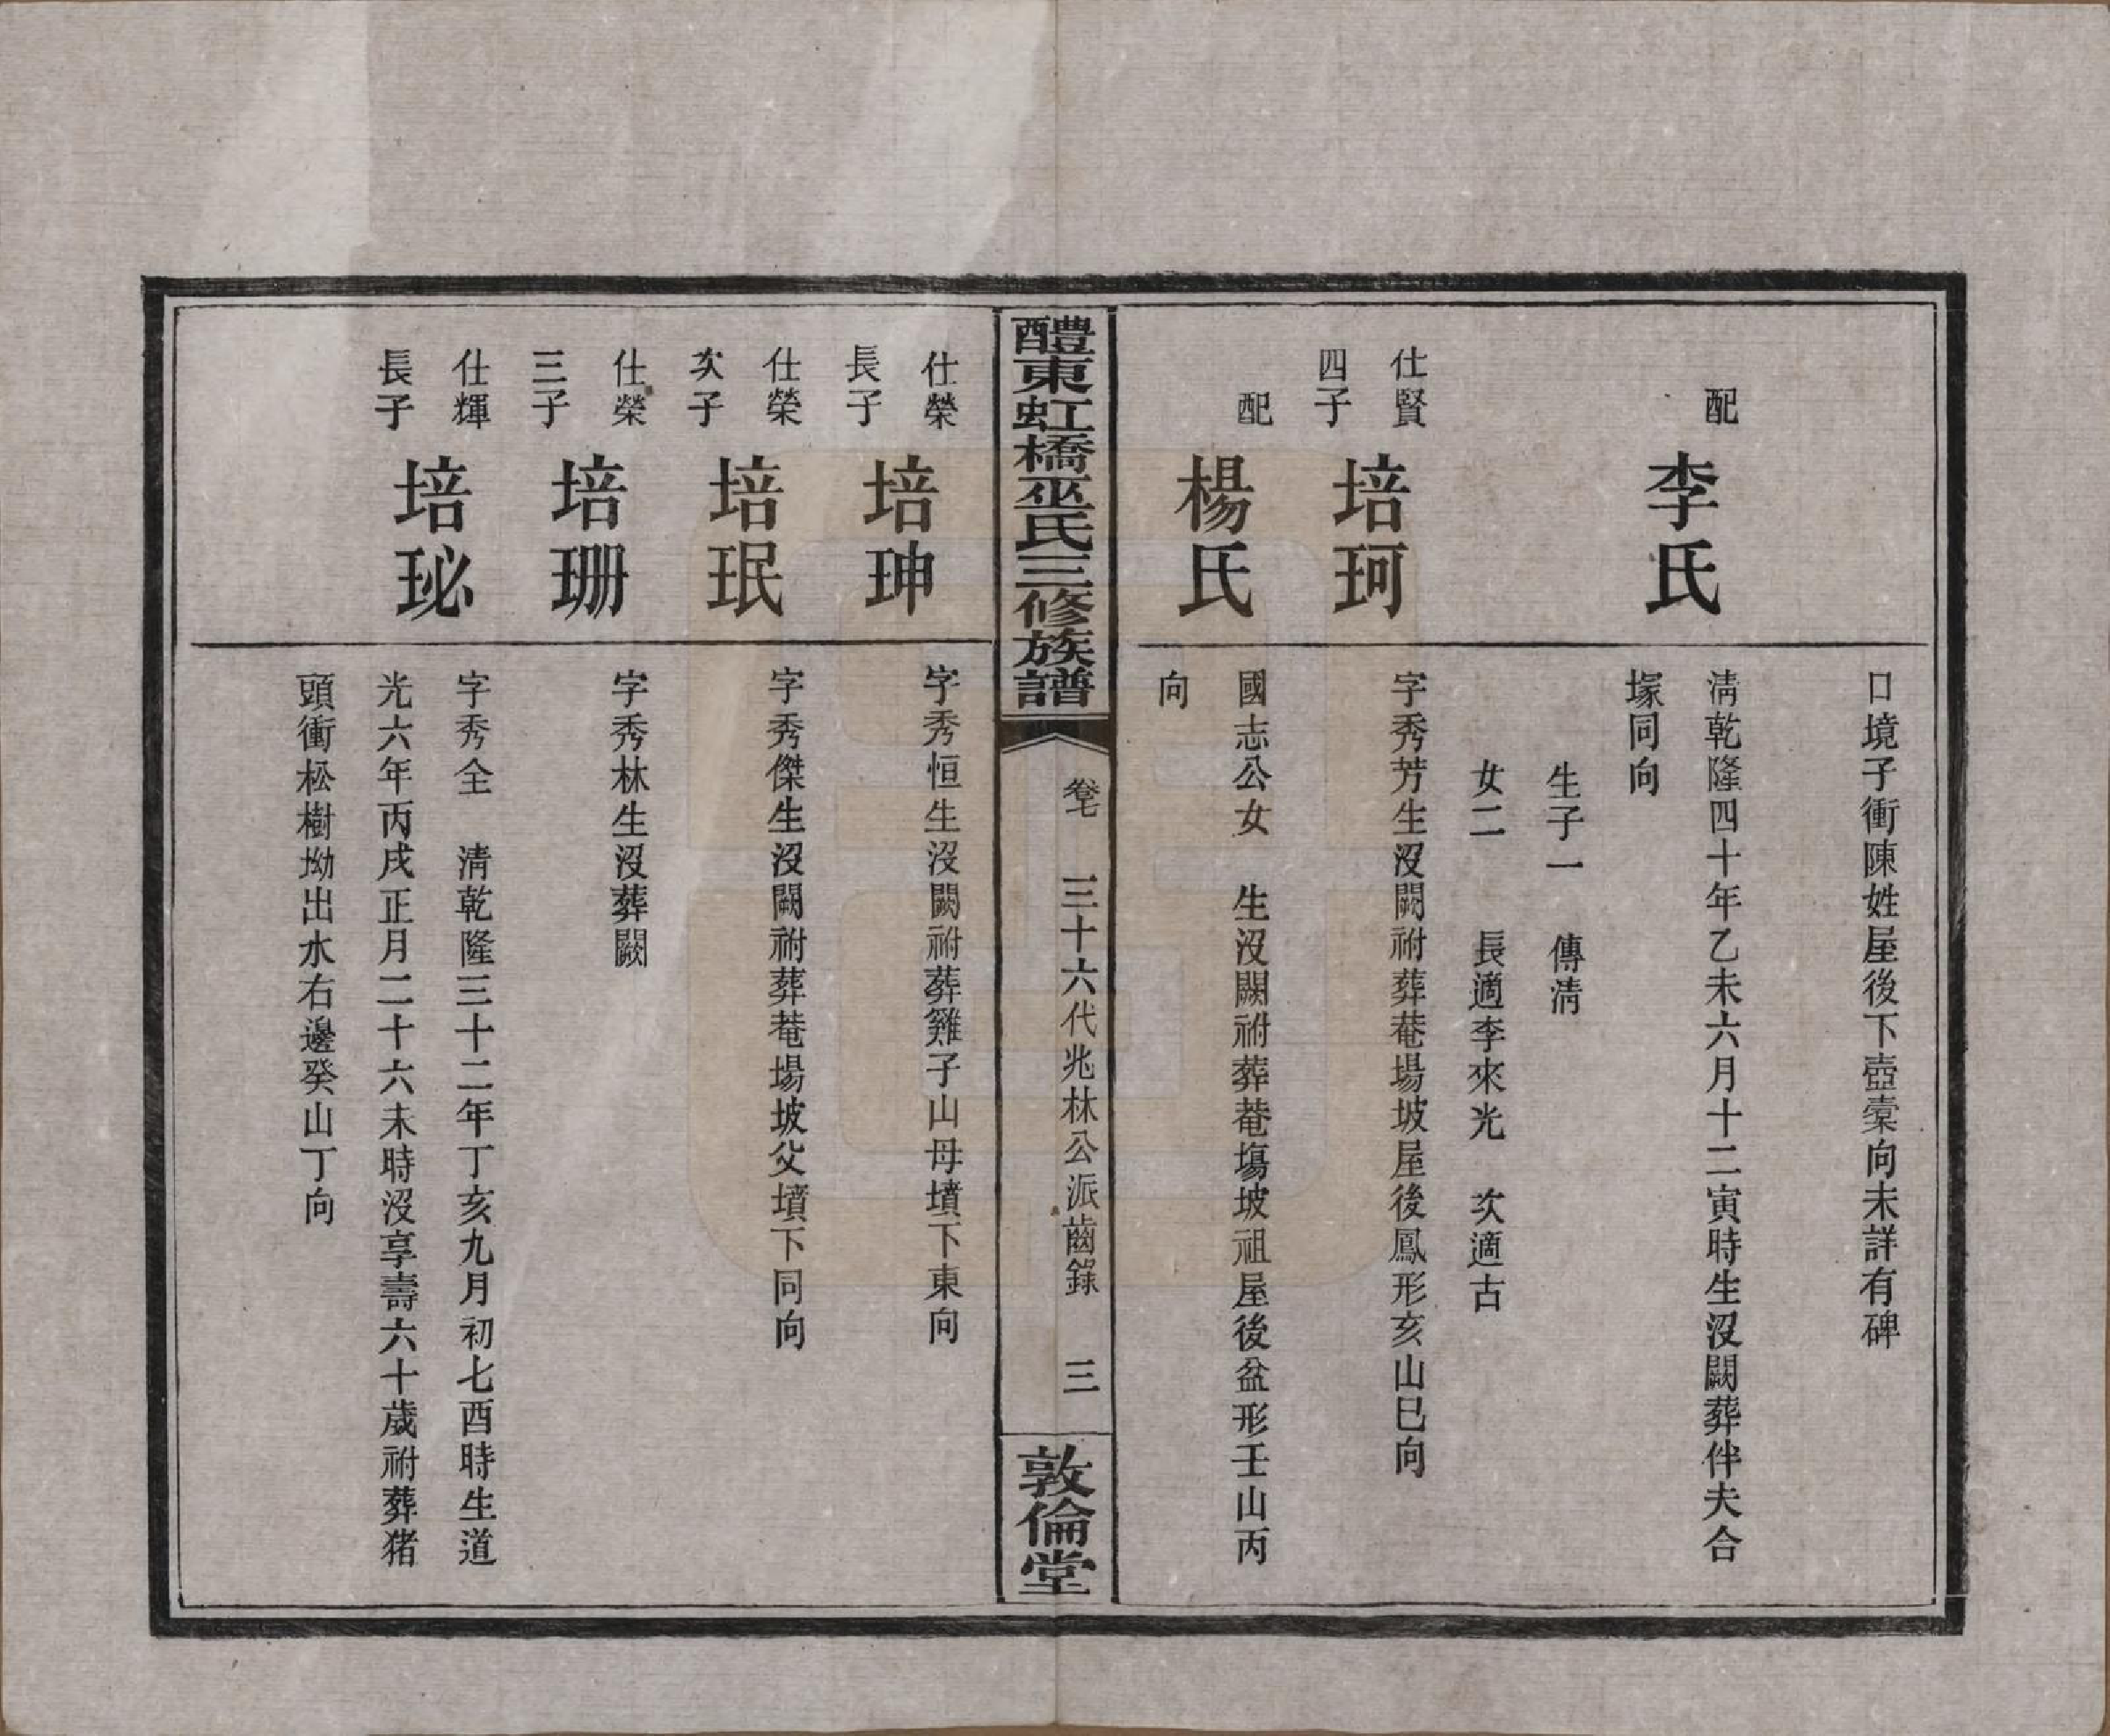 口境子衝陳姓屋後下壺橐向未詳有碑
配
李氏
淸乾隆四十年乙未六月十二寅時生沒闕葬伴夫合
塚同向
生子一　傳淸
女二　長適李來光　次適古
仕賢
四子
培珂
字秀芳生沒闕祔葬菴場坡屋後鳳形亥山巳向
配
楊氏
國志公女　生沒闕祔葬菴塲坡祖屋後盆形壬山丙
向
醴東虹橋巫氏三修族譜
卷七　三十六代兆林公派齒錄　三
敦倫堂
仕榮
長子
培珅
字秀恒生沒闕祔葬雞子山母墳下東向
仕榮
次子
培珉
字秀傑生沒闕祔葬菴場坡父墳下同向
仕榮
三子
培珊
字秀林生沒葬闕
仕輝
長子
培珌
字秀全　淸乾隆三十二年丁亥九月初七酉時生道
光六年丙戌正月二十六未時沒享壽六十歲祔葬猪
頭衝松樹坳出水右邊癸山丁向